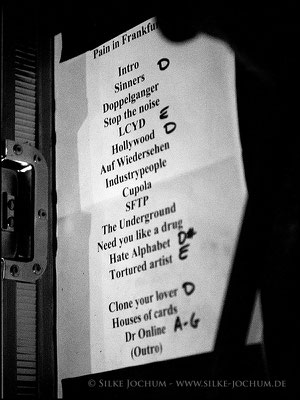 Pain in Frankfu
Intro
Sinners D
Doppelganger
Stop the noise
LCYD E
Hollywood D
Auf Wiedersehen
Industrypeople
Cupola
SFTP
The Underground
Need you like a drug
Hate Alphabet D#
Tortured artist E
Clone your lover D
Houses of cards
Dr Online A-G
(Outro)
© SILKE JOCHUM - WWW.SILKE-JOCHUM.DE